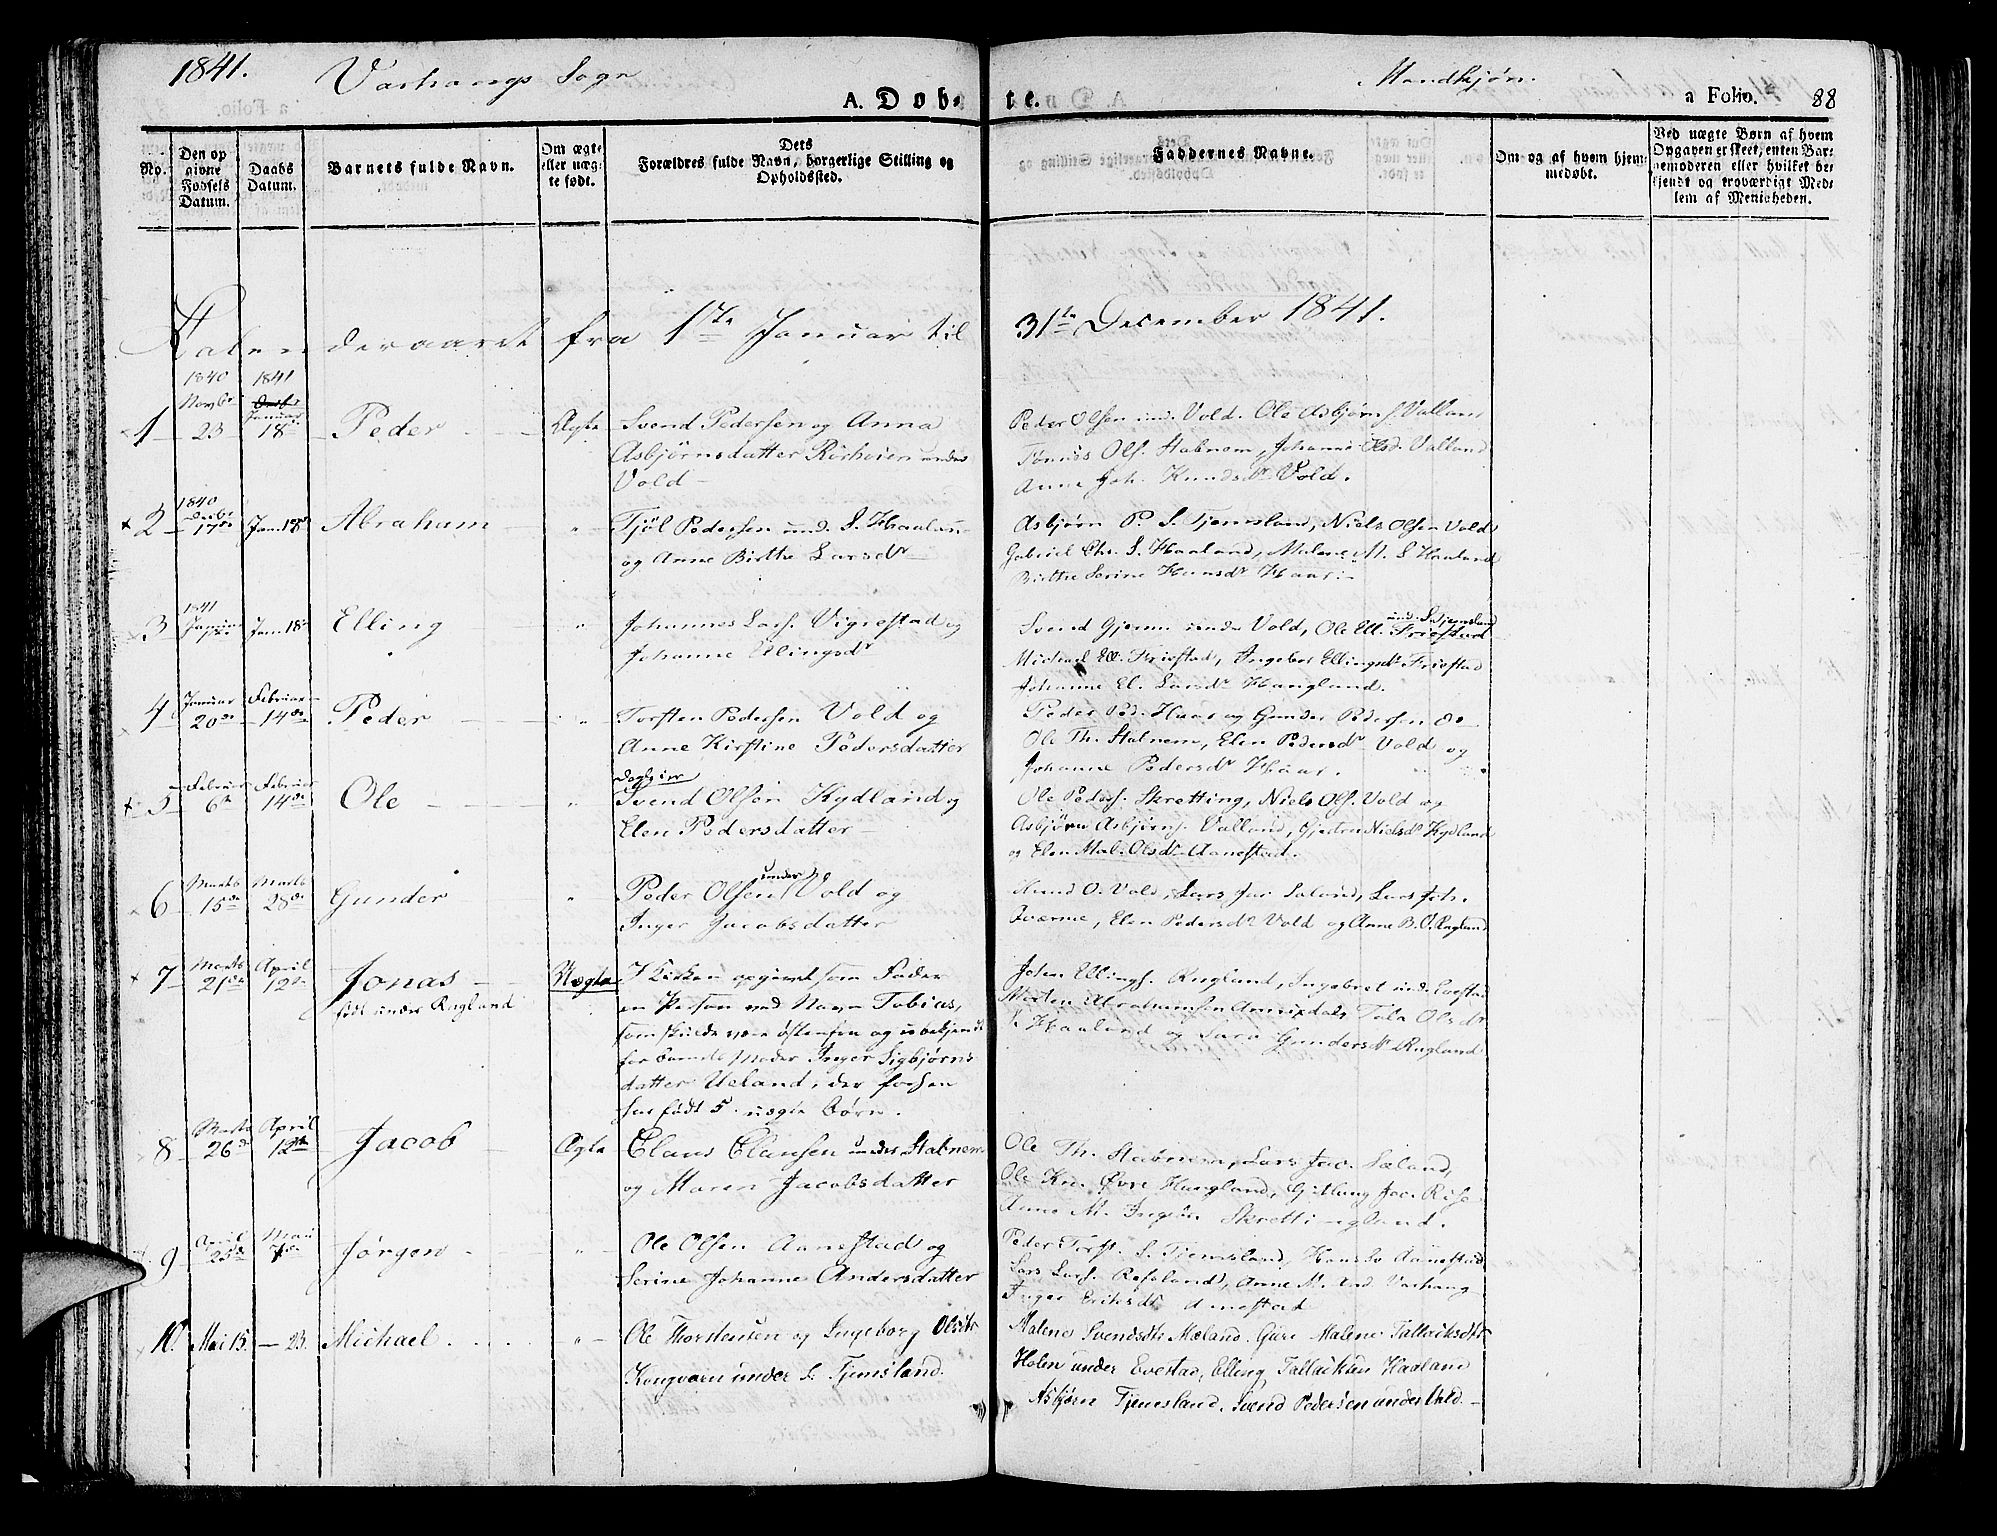 1841. Varhougs Sogn
Mandkjøn.
A. Døbte.
a Folio. 88
No.
Den opgivne Fødsels Datum.
Daabs Datum.
Barnets fulde Navn.
Om ægte eller uægte født.
Dets Forældres fulde Navn, borgerlige Stilling og Opholdssted.
Faddernes Navne.
Om og af hvem hjemmedøbt.
Ved uægte Børn af hvem Opgaven er skeet, enten Barnemoderen eller hvilket bekjendt og troværdigt Medlem af Menigheden.
Kalenderaaret fra 1ste Januar til 31te December 1841.
1840 1841
1 Novbr 23 Januar 18de Peder Ægte
Svend Pedersen og Anna
Asbjørnsdatter under
Vold
Peder Olsen und. Vold. Ole Asbjørns. Valland
Tønnes Ols. Stabnem, Johanne Valland
Anne Joh. Knudsdr Vold.
1840
2 Decbr 17de Jan. 18de Abraham "
Tjøl Pedersen und. S. Haaland
og Anne Birthe Larsdr
Asbjørn P. S. Tjemsland, Niels Olsen Vold
Gabriel Chr. S. Haaland, Malene M. S. Haaland
Birthe Serine Hansdr Haar
1841
3 Januar Jan. 18de Elling "
Johannes Lars. Vigrestad og
Johanne Ellingsdr
und. S. Tjemsland
Svend Gjerm under Vold, Ole Ell. Friestad
Michael Ell. Friestad, Ingebor Ellingsdr Friestad
Johanne El. Larsdr Haugland.
4 Januar 20de Februar 14de Peder "
Torsten Pedersen Vold og
Anne Kirstine Pedersdatter
Peder Ped. Haar og Gunder Pedersen do
Ole Th. Stabnem, Elen Pedersdr Vold og
Johanne Pedersdr Haar.
5 Februar 6te Februar 14de Ole "
Svend Olsen Kydland og
Elen Pedersdatter
Ole Peders. Skretting, Niels Ols. Vold og
Asbjørn Asbjørns. Valland, Nielsdr Kydland
og Elen Mal. Olsdr Aanestad.
6 Marts 15de Marts 28de Gunder "
Peder Olsen under Vold og
Inger Jacobsdatter
O. Vold, Lars Jac Sæland, Lars Joh.
Tværme, Elen Pedersdr Vold og Anne B. O. Rugland
7 Marts 21de April 12te Jonas Uægte
født under Rugland
I Kirken opgivet som Fader
en Person ved Navn Tobias,
som skulde være østenfra og ubekjendt
for Barnets Moder Inger Sigbjørns-
datter Ueland, der forhen
har født 5 uægte Børn.
John Ellings. Rugland, Ingebret und. Evestad
Morten Abrahamsen Tale Olsdr
S. Haaland og Sara Gundersdr Rugland
8 Marts 26de April 12te Jacob Ægte
Claus Clausen under Stabnem
og Maren Jacobsdatter
Ole Th. Stabnem, Lars Jac. Sæland,
Ole Kn. Øvre Haugland, Gitlaug Jac. Rise
Anne M. Skrettingland.
9 April 25de Maii Jørgen "
Ole Olsen Aanestad og
Serine Johanne Andersdatter
Peder Torst. S. Tjemsland, Hans Aanestad
Lars Lars. Røseland, Anne M. Varhaug
Inger Eriksdr Anestad
10 Mai 15. 23. Michael "
Ole Thorstensen og Ingeborg Olsdtr
Kongvarn under S. Tjemsland.
Malene Svendsdtr Mæland. Guri Malene Tallaksdtr
Holen under Evestad, Elling Tallaksen Haaland
Asbjørn Tjemsland. Svend Pedersen under Vold.